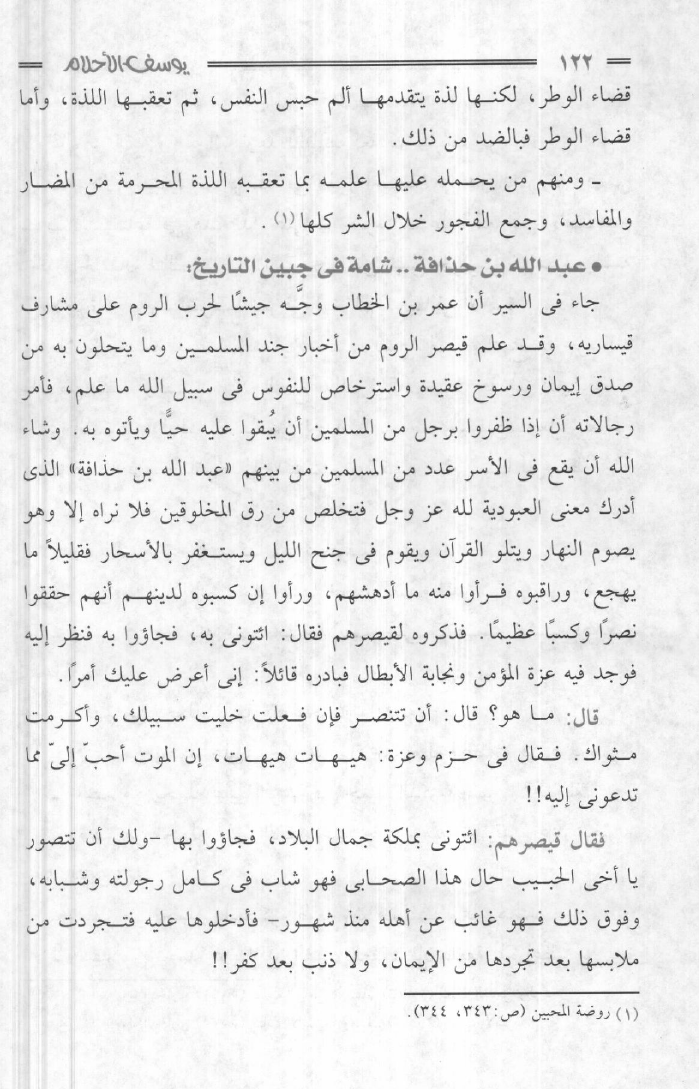 ١٢٢ يوسف الأحلام
قضاء الوطر، لكنها لذة يتقدمها ألم حبس النفس، ثم تعقبها اللذة، وأما
قضاء الوطر فبالضد من ذلك.
ـ ومنهم من يحمله عليها علمه بما تعقبه اللذة المحرمة من المضار
والمفاسد، وجمع الفجور خلال الشر كلها(١).
• عبد الله بن حذافة .. شامة فى جبين التاريخ:
جاء فى السير أن عمر بن الخطاب وجَّه جيشًا لحرب الروم على مشارف
قيساريه، وقد علم قيصر الروم من أخبار جند المسلمين وما يتحلون به من
صدق إيمان ورسوخ عقيدة واسترخاص للنفوس فى سبيل الله ما علم، فأمر
رجالاته أن إذا ظفروا برجل من المسلمين أن يُبقوا عليه حيًّا ويأتوه به. وشاء
الله أن يقع فى الأسر عدد من المسلمين من بينهم «عبد الله بن حذافة» الذى
أدرك معنى العبودية لله عز وجل فتخلص من رق المخلوقين فلا نراه إلا وهو
يصوم النهار ويتلو القرآن ويقوم فى جنح الليل ويستغفر بالأسحار فقليلاً ما
يهجع، وراقبوه فرأوا منه ما أدهشهم، ورأوا إن كسبوه لدينهم أنهم حققوا
نصرًا وكسبًا عظيمًا. فذكروه لقيصرهم فقال: ائتونى به، فجاؤوا به فنظر إليه
فوجد فيه عزة المؤمن ونجابة الأبطال فبادره قائلاً: إنى أعرض عليك أمرًا.
قال: ما هو؟ قال: أن تتنصر فإن فعلت خليت سبيلك، وأكرمت
مثواك. فقال فى حزم وعزة: هيهات هيهات، إن الموت أحبّ إلىّ مما
تدعونى إليه!!
فقال قيصرهم: ائتونى بملكة جمال البلاد، فجاؤوا بها -ولك أن تتصور
يا أخى الحبيب حال هذا الصحابى فهو شاب فى كامل رجولته وشبابه،
وفوق ذلك فهو غائب عن أهله منذ شهور- فأدخلوها عليه فتجردت من
ملابسها بعد تجردها من الإيمان، ولا ذنب بعد كفر!!
(١) روضة المحبين (ص:٣٤٣، ٣٤٤).